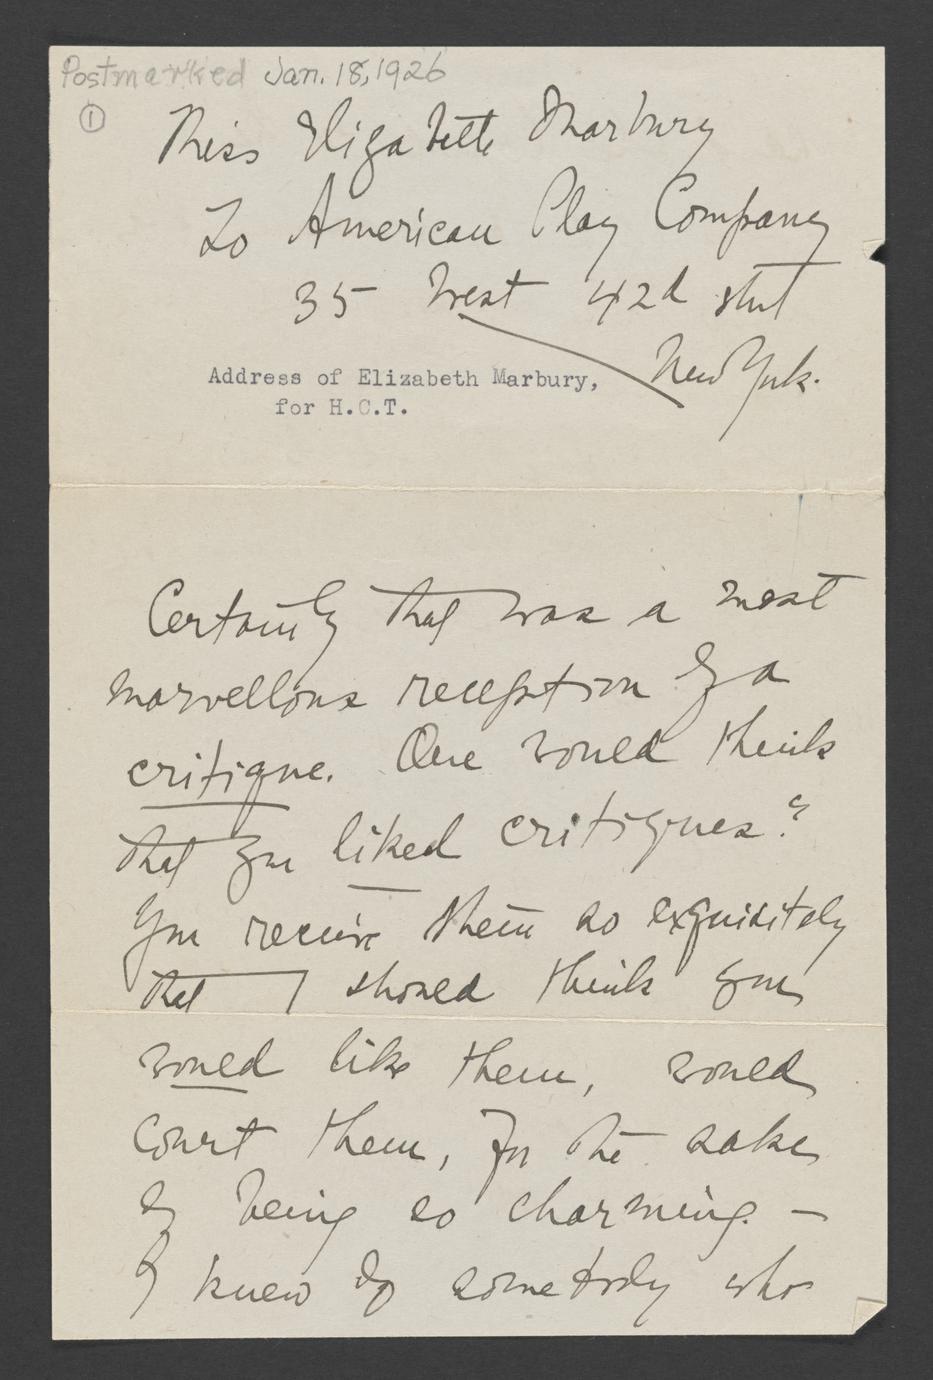 Postmarked Jan. 18, 1926
①
Miss Elizabeth Marbury
To American Play Company
35 West 42d street
New York.
Address of Elizabeth Marbury,
for H.C.T.
Certainly that was a most
marvellous reception of a
critique. One would think
that you liked critiques!
You receive them so exquisitely
that I should think you
would like them, would
court them, for the sake
of being so charming. —
I knew of somebody who